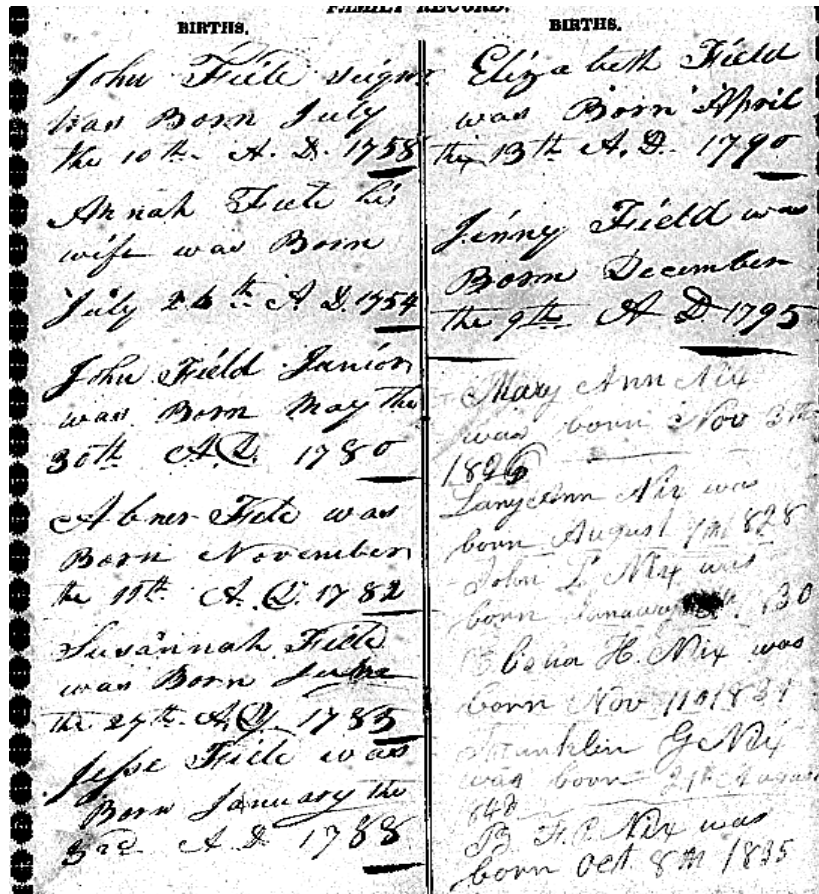 FAMILY RECORD.
BIRTHS.
John Field seignr
was Born July
the 10th A. D. 1758
Annah Field his
wife was Born
July 24th A D. 1754
John Field Junior
was Born May the
30th A.D. 1780
Abner Field was
Born November
the 11th A. D. 1782
Susannah Field
was Born June
the 27th A.D. 1785
Jesse Field was
Born January the
3rd A D 1788
BIRTHS.
Elizabeth Field
was Born April
the 13th A. D. 1790
Jenny Field was
Born December
the 9th A D 1795
Mary Ann Nix
was born Nov 3th
182
Nix was
born August 1828
John L Nix was
born Januwary 30
H. Nix was
born Nov 11 1831
Franklin G Nix
was born 21th
184
B. F. P. Nix was
born Oct 8th 1835